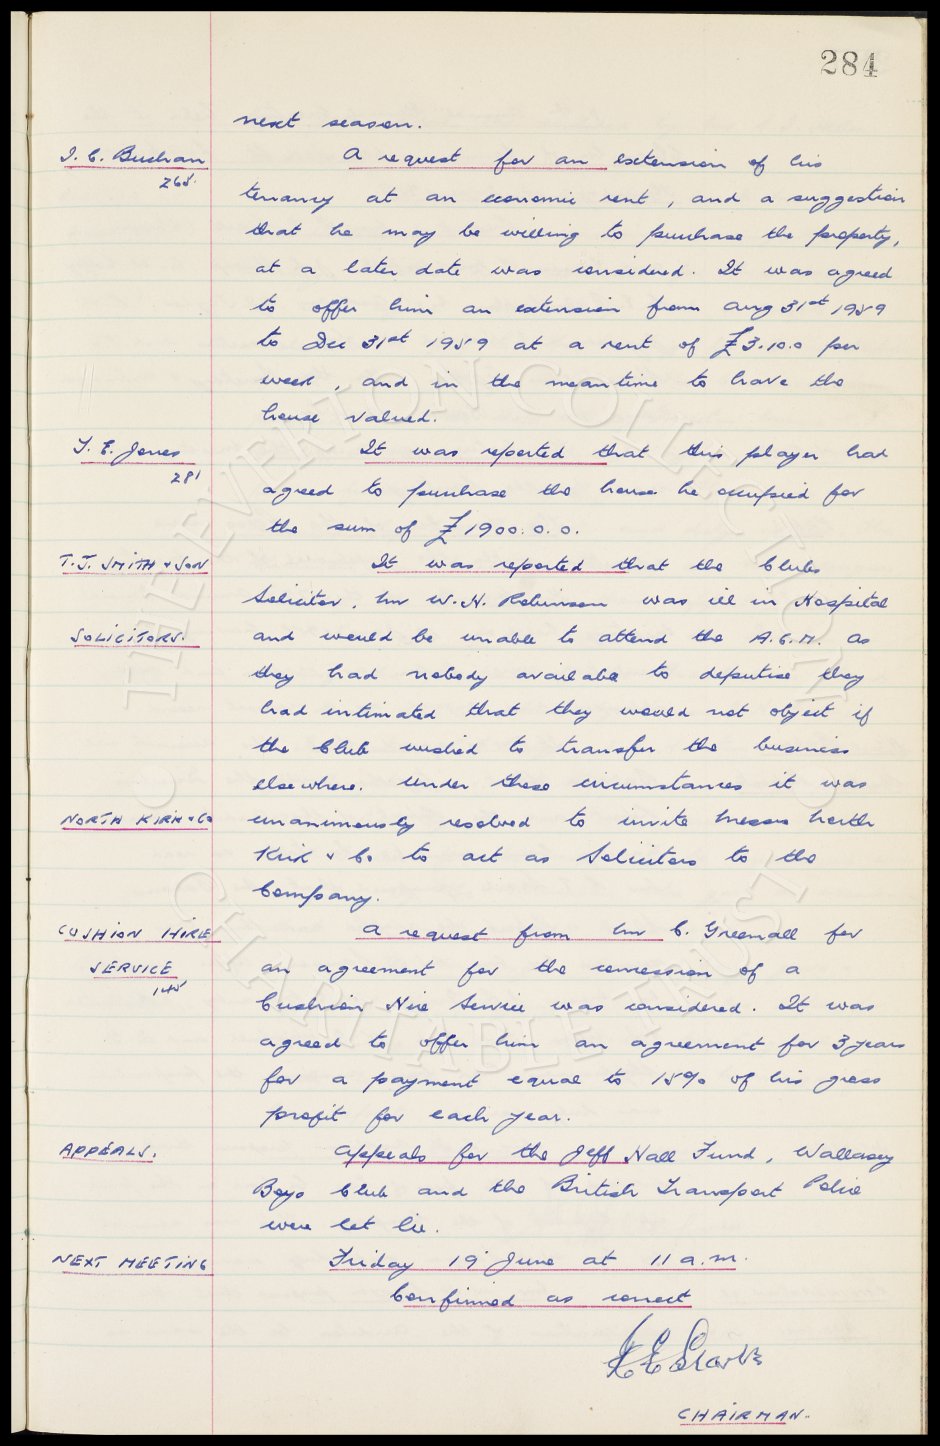 284
next season.
I. C. Buchan
A request for an extension of his
268.
tenancy at an economic rent, and a suggestion
that he may be willing to purchase the property,
at a later date was considered. It was agreed
to offer him an extension from Aug 31st 1959
to Dec 31st 1959 at a rent of £3.10.0 per
week, and in the meantime to have the
house valued.
T. E. Jones
It was reported that this player had
281
agreed to purchase the house he occupied for
the sum of £1900.0.0.
T. J. SMITH & SON
It was reported that the Clubs
Solicitor, Mr W. H. Robinson was ill in Hospital
SOLICITORS.
and would be unable to attend the A.G.M. As
they had nobody available to deputise they
had intimated that they would not object if
the Club wished to transfer the business
elsewhere. Under these circumstances it was
NORTH KIRK & Co
unanimously resolved to invite Messrs North
Kirk & Co to act as Solicitors to the
Company.
CUSHION HIRE
A request from Mr C. Greenall for
SERVICE
an agreement for the concession of a
145
Cushion Hire Service was considered. It was
agreed to offer him an agreement for 3 years
for a payment equal to 15% of his gross
profit for each year.
APPEALS.
Appeals for the Jeff Hall Fund, Wallasey
Boys Club and the British Transport Police
were let lie.
NEXT MEETING
Friday 19 June at 11 a.m.
Confirmed as correct
CHAIRMAN.
© THE EVERTON COLLECTION
CHARITABLE TRUST